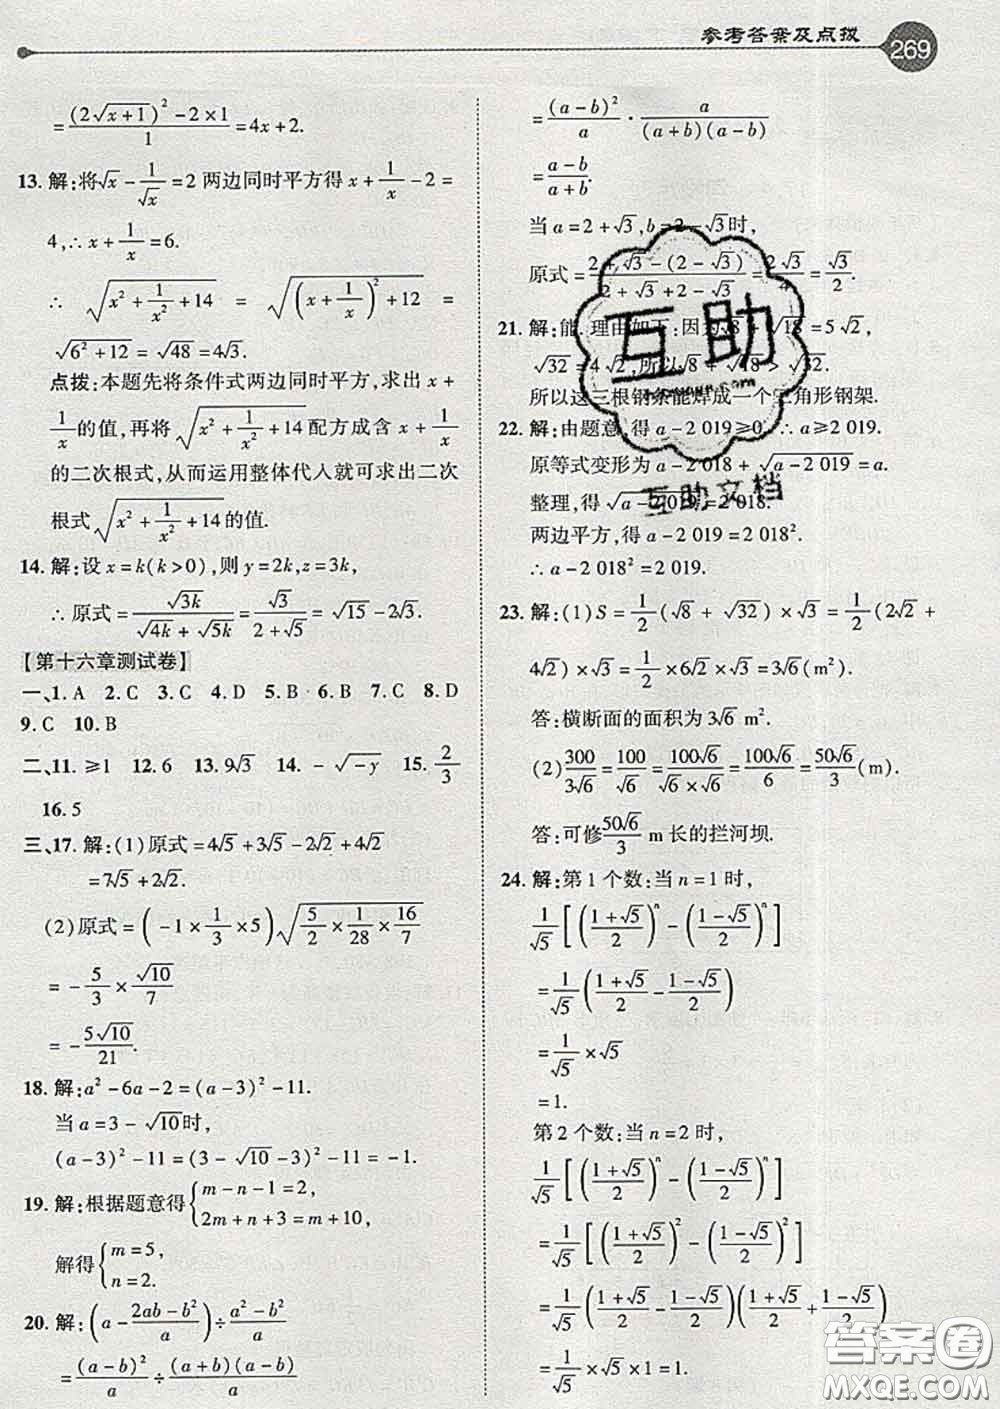 参考答案及点拨 269
=\frac{(2\sqrt{x+1})^2-2×1}{1}=4x+2.
13. 解:将\sqrt{x}-\frac{1}{\sqrt{x}}=2 两边同时平方得 x+\frac{1}{x}-2=
4,∴x+\frac{1}{x}=6.
∴ \sqrt{x^2+\frac{1}{x^2}+14} = \sqrt{(x+\frac{1}{x})^2+12} =
\sqrt{6^2+12}=\sqrt{48}=4\sqrt{3}.
点拨:本题先将条件式两边同时平方,求出 x+
\frac{1}{x}的值,再将\sqrt{x^2+\frac{1}{x^2}+14}配方成含 x+\frac{1}{x}
的二次根式,从而运用整体代入就可求出二次
根式\sqrt{x^2+\frac{1}{x^2}+14}的值.
14. 解:设 x=k(k>0),则 y=2k,z=3k,
∴原式=\frac{\sqrt{3k}}{\sqrt{4k}+\sqrt{5k}}=\frac{\sqrt{3}}{2+\sqrt{5}}=\sqrt{15}-2\sqrt{3}.
【第十六章测试卷】
一、1. A 2. C 3. C 4. D 5. B 6. B 7. C 8. D
9. C 10. B
二、11. ≥1 12. 6 13. 9\sqrt{3} 14. -\sqrt{-y} 15. \frac{2}{3}
16. 5
三、17. 解:(1)原式=4\sqrt{5}+3\sqrt{5}-2\sqrt{2}+4\sqrt{2}
=7\sqrt{5}+2\sqrt{2}.
(2)原式=(-1×\frac{1}{3}×5)\sqrt{\frac{5}{2}×\frac{1}{28}×\frac{16}{7}}
=-\frac{5}{3}×\frac{\sqrt{10}}{7}
=-\frac{5\sqrt{10}}{21}.
18. 解:a^2-6a-2=(a-3)^2-11.
当 a=3-\sqrt{10}时,
(a-3)^2-11=(3-\sqrt{10}-3)^2-11=-1.
19. 解:根据题意得{m-n-1=2,
2m+n+3=m+10,
解得{m=5,
n=2.
20. 解:(a-\frac{2ab-b^2}{a})÷\frac{a^2-b^2}{a}
=\frac{(a-b)^2}{a}÷\frac{(a+b)(a-b)}{a}
=\frac{(a-b)^2}{a}·\frac{a}{(a+b)(a-b)}
=\frac{a-b}{a+b}.
当 a=2+\sqrt{3},b=2-\sqrt{3}时,
原式=\frac{2+\sqrt{3}-(2-\sqrt{3})}{2+\sqrt{3}+2-\sqrt{3}}=\frac{2\sqrt{3}}{4}=\frac{\sqrt{3}}{2}.
21. 解:能. 理由如下:因为\sqrt{8}+\sqrt{18}=5\sqrt{2},
\sqrt{32}=4\sqrt{2},所以\sqrt{8}+\sqrt{18}>\sqrt{32}.
所以这三根钢条能焊成一个三角形钢架.
22. 解:由题意,得 a-2 019≥0,∴a≥2 019.
原等式变形为 a-2 018+\sqrt{a-2 019}=a.
整理,得\sqrt{a-2 019}=2 018.
两边平方,得 a-2 019=2 018^2.
∴a-2 018^2=2 019.
23. 解:(1)S=\frac{1}{2}(\sqrt{8}+\sqrt{32})×\sqrt{3}=\frac{1}{2}(2\sqrt{2}+
4\sqrt{2})×\sqrt{3}=\frac{1}{2}×6\sqrt{2}×\sqrt{3}=3\sqrt{6}(m^2).
答:横断面的面积为 3\sqrt{6} m^2.
(2)\frac{300}{3\sqrt{6}}=\frac{100}{\sqrt{6}}=\frac{100\sqrt{6}}{\sqrt{6}×\sqrt{6}}=\frac{100\sqrt{6}}{6}=\frac{50\sqrt{6}}{3}(m).
答:可修\frac{50\sqrt{6}}{3} m 长的拦河坝.
24. 解:第 1 个数:当 n=1 时,
\frac{1}{\sqrt{5}}[(\frac{1+\sqrt{5}}{2})^n-(\frac{1-\sqrt{5}}{2})^n]
=\frac{1}{\sqrt{5}}(\frac{1+\sqrt{5}}{2}-\frac{1-\sqrt{5}}{2})
=\frac{1}{\sqrt{5}}×\sqrt{5}
=1.
第 2 个数:当 n=2 时,
\frac{1}{\sqrt{5}}[(\frac{1+\sqrt{5}}{2})^n-(\frac{1-\sqrt{5}}{2})^n]
=\frac{1}{\sqrt{5}}[(\frac{1+\sqrt{5}}{2})^2-(\frac{1-\sqrt{5}}{2})^2]
=\frac{1}{\sqrt{5}}(\frac{1+\sqrt{5}}{2}-\frac{1-\sqrt{5}}{2})(\frac{1+\sqrt{5}}{2}+\frac{1-\sqrt{5}}{2})
=\frac{1}{\sqrt{5}}×\sqrt{5}×1
互助
互助文档
答案圈
MXQE.COM